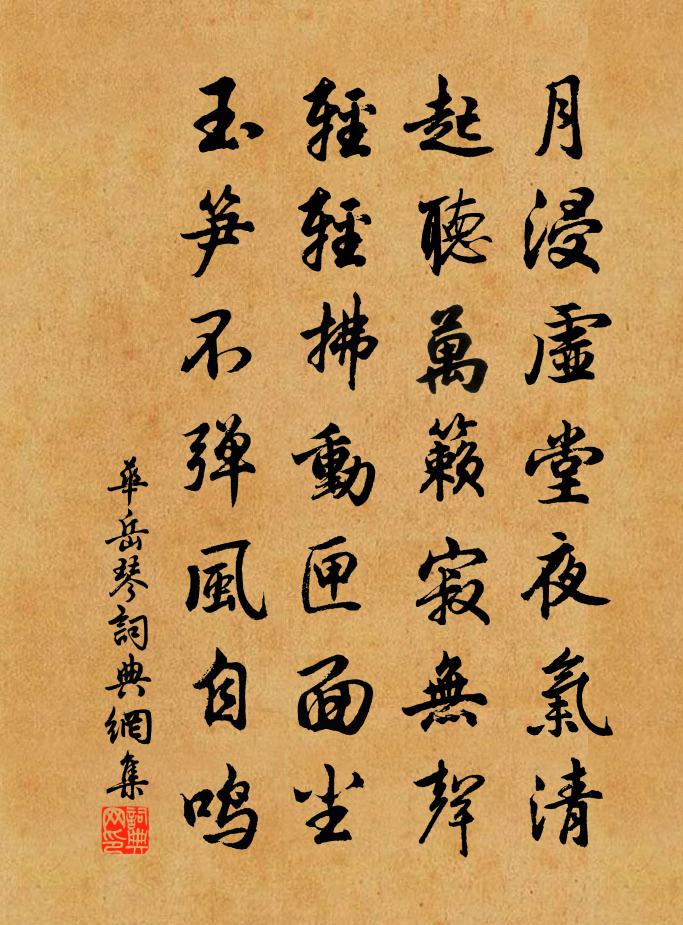 月浸虛堂夜氣清
起聽萬籟寂無聲
輕輕拂動匣面尘
玉笋不弹風自鸣
華岳琴詞典網集
詞典网印